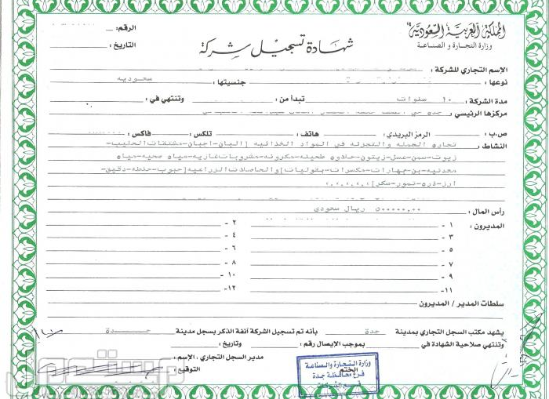 المملكة العربية السعودية
وزارة التجارة و الصناعة
الرقم :
شهادة تسجيل شركة
التاريخ :
الإسم التجاري للشركة :
نوعها : جنسيتها : سعوديه
مدة الشركة : ١٠ سنوات تبدأ من وتنتهي في :
مركزها الرئيسي :
ص.ب : الرمز البريدي : هاتف : تلكس : فاكس :
النشاط : تجارة الجمله والتجزئه في المواد الغذائيه (البان-اجبان-مشتقات الحليب-
زيوت-سمن-عسل-زيتون-حلاوه طحينه-مكرونه-مشروبات غازيه-مياه صحيه-مياه
معدنيه-بن-بهارات-مكسرات-بقوليات) والحاصلات الزراعيه (حبوب-حنطه-دقيق-
ارز-ذره-تمور-سكر)
رأس المال : ٥٠٠٠٠٠,٠٠ ريال سعودي
المديرون : ١ - ٢ -
٣ - ٤ -
٥ - ٦ -
٧ - ٨ -
٩ - ١٠ -
١١- ١٢-
سلطات المدير / المديرون :
يشهد مكتب السجل التجاري بمدينة جدة بأنه تم تسجيل الشركة آنفة الذكر بسجل مدينة جدة
وتنتهي صلاحية الشهادة في بموجب الايصال رقم : وتاريخ :
الختم
مدير السجل التجاري : الإسم :
التوقيع :
وزارة التجارة والصناعة
فرع محافظة جدة